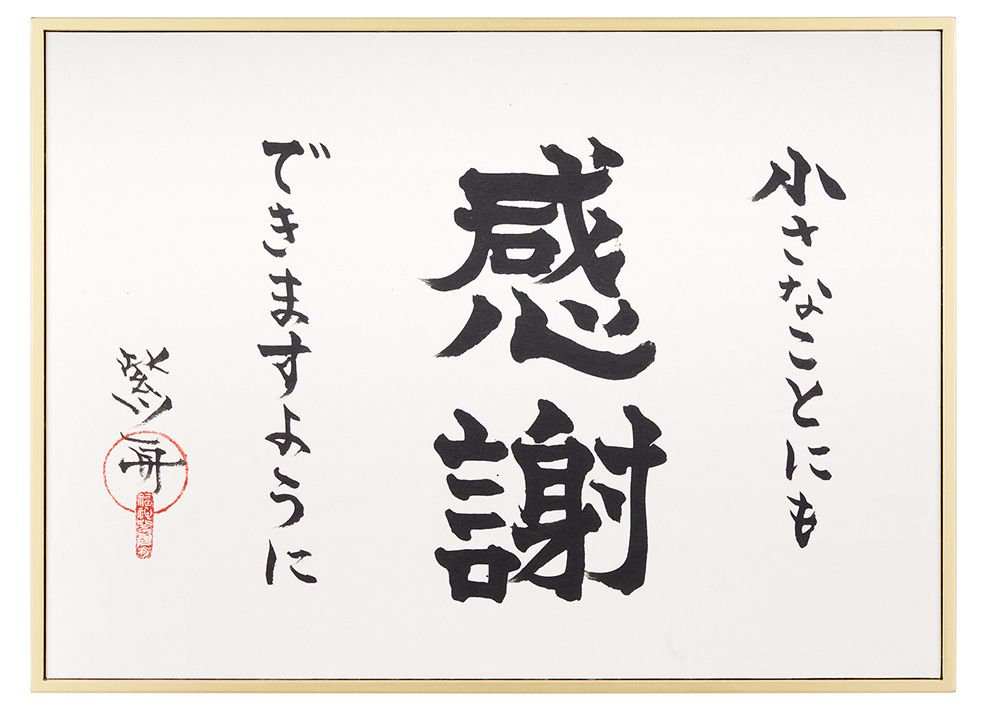 小さなことにも
感謝
できますように
紫舟